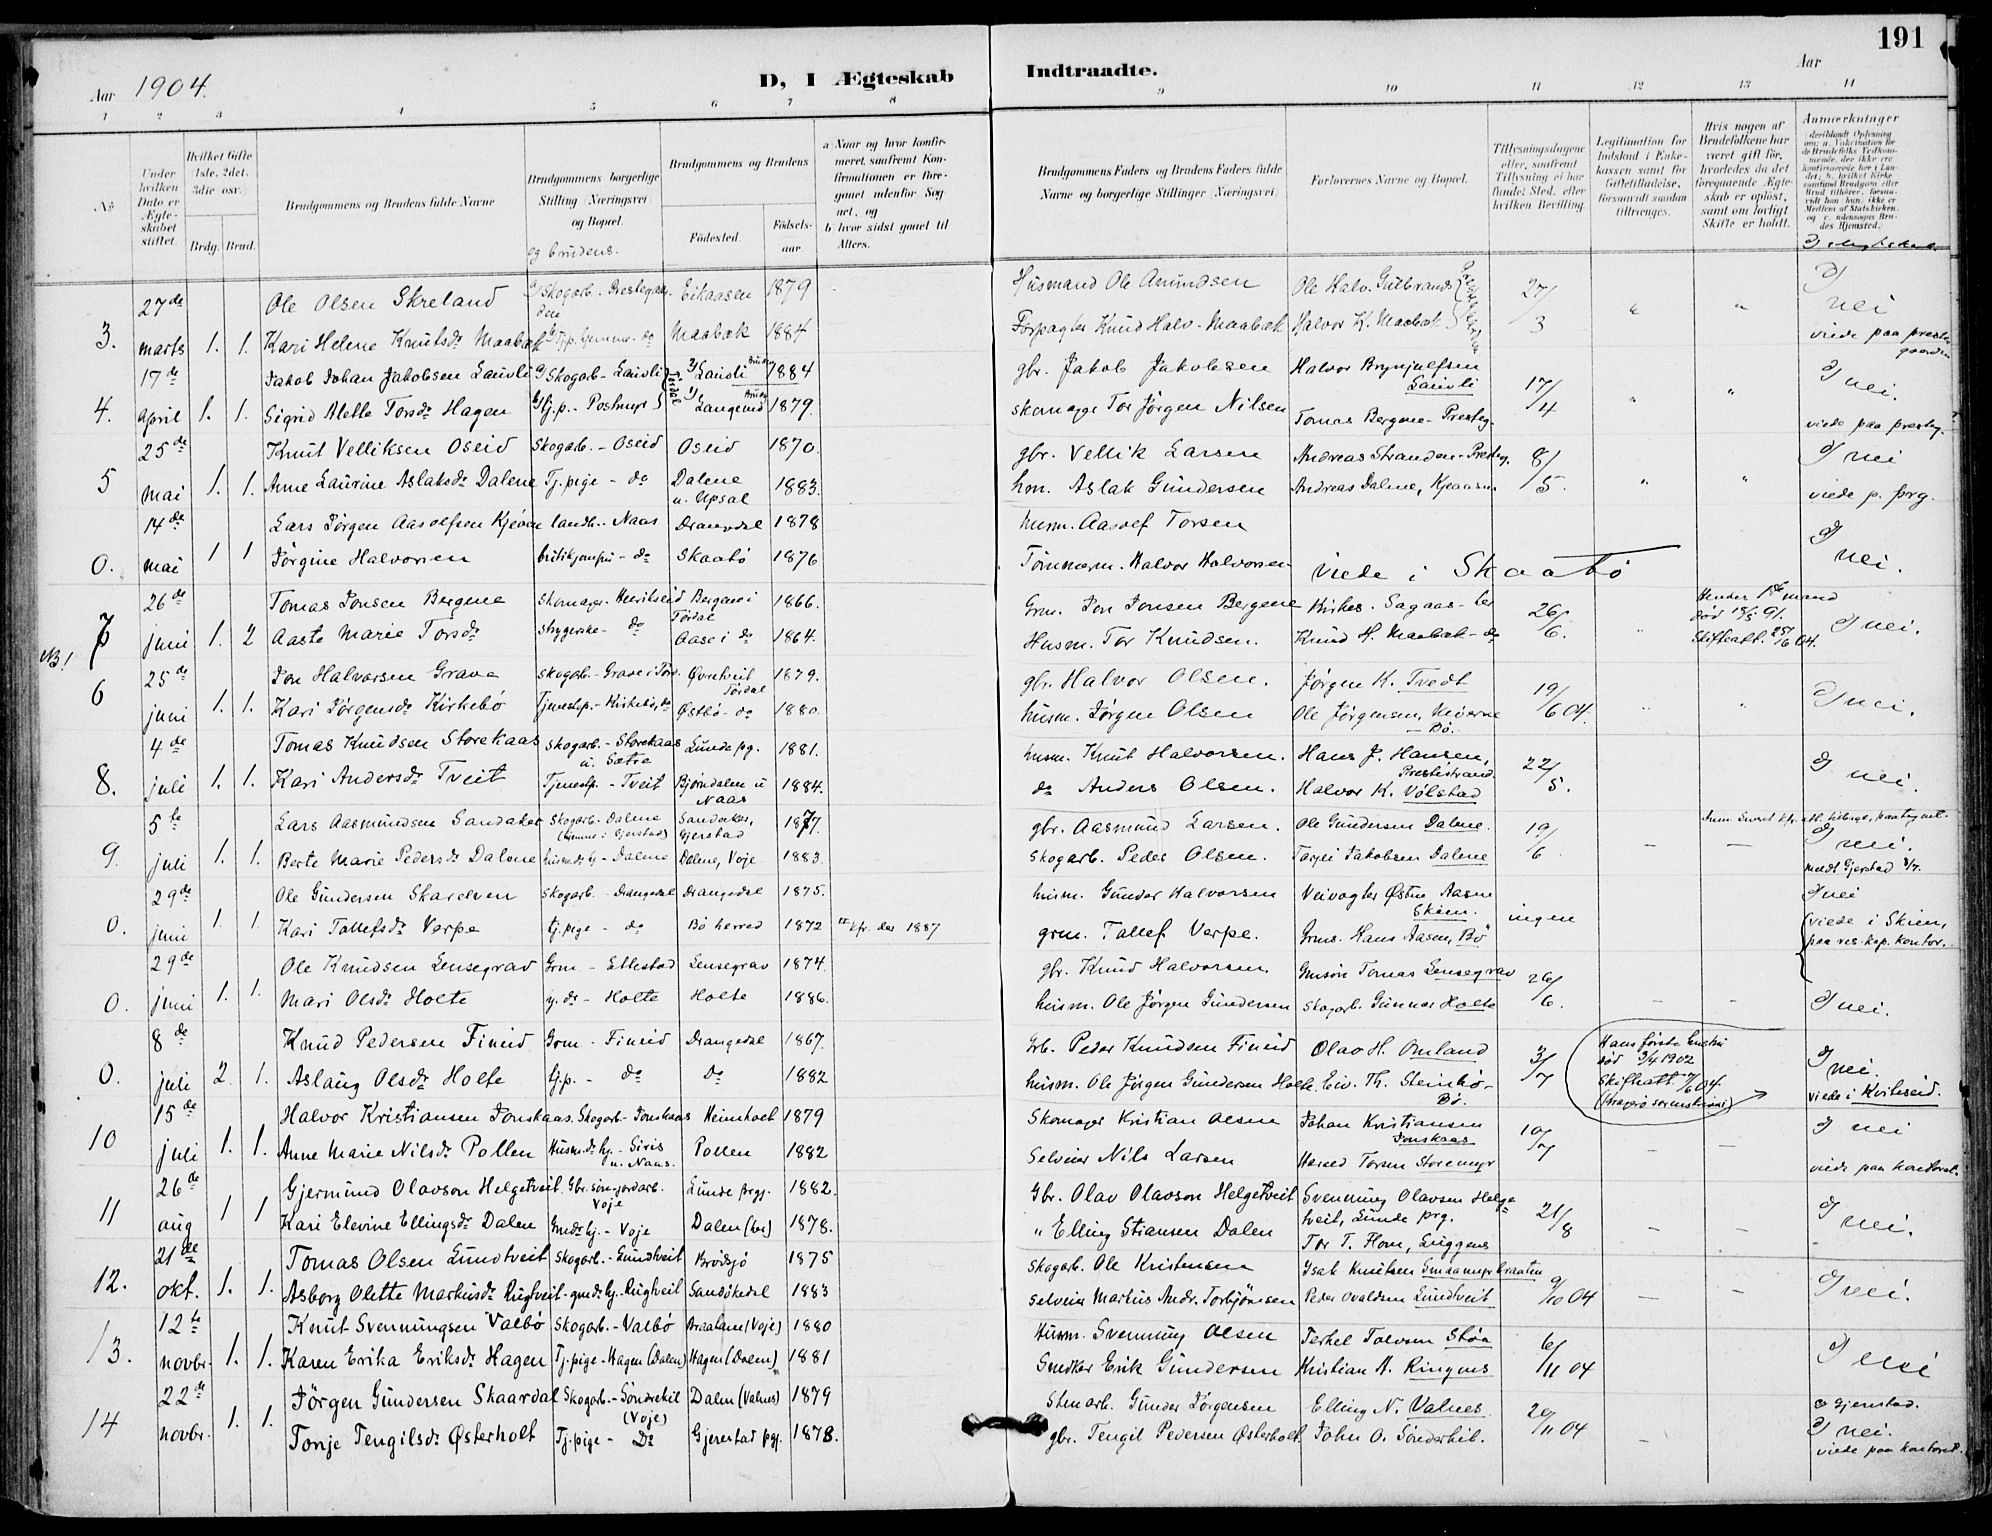 191
Aar 1904.
D, I Ægteskab Indtraadte.
Aar
1 2 3 4 5 6 7 8 9 10 11 12 13 14
No
Under hvilken Dato er Ægteskabet stiftet.
Hvilket Gifte 1ste, 2det, 3die osv.
Brdg. Brud.
Brudgommens og Brudens fulde Navne
Brudgommens borgerlige Stilling Næringsvei og Bopæl.
og brudens.
Brudgommens og Brudens
Fødested.
Fødselsaar.
a Naar og hvor konfirmeret, saafremt Konfirmationen er foregaaet udenfor Sognet, og
b hvor sidst gaaet til Alters.
Brudgommens Faders og Brudens Faders fulde Navne og borgerlige Stillinger Næringsvei.
Forlovernes Navne og Bopæl.
Tillysningsdagene eller, saafremt Tillysning ei har fundet Sted, efter hvilken Bevilling.
Legitimation for Indskud i Enkekassen samt for Giftetilladelse, forsaavidt saadan tiltrænges.
Hvis nogen af Brudefolkene har været gift før, hvorledes da det foregaaende Ægteskab er opløst, samt om lovligt Skifte er holdt.
Anmærkninger
27de Ole Olsen Skreland a/ Skogarb. - Prestegaarden Eikaasen 1879 Husmand Ole Amundsen Ole Halv. Gulbrands 27/3 nei
3. marts 1. 1. Kari Helene Knutsdr Maabæk Maabæk 1884 Forpagter Knud Halv. Maabæk Halvor K. Maabæk viede paa prestegaarden
17de Jakob Johan Jakobsen Lauvli a/ Skogarb - Lauvli Lauvli 1884 gbr. Jakob Jakobsen Halvor Brynjulfsen Lauvli 17/4 nei.
4. april 1. 1. Sigrid Alette Torsdr Hagen tj.p. - Postmyr Langemo 1879. skomager Tor Jörgen Nilsen Tomas Bergene - Presteg. viede paa presteg.
25de Knut Velliksen Oseid Skogarb. - Oseid Oseid 1870. gbr. Vellik Larsen Andreas Stranden - Presteg. 8/5. nei
5 mai 1. 1. Anne Laurine Aslaksdr Dalene Tj.pige - do Dalene u. Upsal 1883. hm. Aslak Gundersen Andreas Dalene, Kjeaasen viede p. prg.
14de Lars Jörgen Aasolfsen Kjöven landh. - Naas Drangedal 1878 husm. Aasolf Torsen
0. mai 1 1 Jörgine Halvorsen do Skaabö 1876 Tömmerm. Halvor Halvorsen viede i Skaabö nei.
26de Tomas Jonsen Bergene Skomager. Henrikseid Bergene i Tördal 1866. Grm. Jon Jonsen Bergene Kirkes. Sagaas - her 26/6. Hendes 1ste mand död 18/5 91. nei.
NB! 7 juni 1. 2 Aaste Marie Torsdr strygerske - do Aase i do 1864. Husm. Tor Knudsen. Knud H. Maabæk - do Skifteatt. 25/6 04.
25de Jon Halvorsen Grava skogarb. - Grave i Törd. Övretveit Tördal 1879. gbr. Halvor Olsen. Jörgen K. Tvedt 19/6 04. nei.
6 juni 1. 1. Kari Jörgensdr Kirkebö Tjenestp. - Kirkebö, do Östbö - do 1880. husm. Jörgen Olsen Ole Jörgensen, - Bö.
4de Tomas Knudsen Storekaas Skogarb. - Storekaas u. Sætre Lunde pg. 1881. husm. Knut Halvorsen. Hans J. Hansen, Prestestrand 22/5. nei.
8. juli 1. 1. Kari Andersdr Tveit Tjenestp. - Tveit Bjørndalen u Naas 1884. do Anders Olsen. Halvor K. Völstad
5te Lars Aasmundsen Sandaker Skogarb. Dalene (hjemme i Gjerstad) Sandaker, Gjerstad 1877. gbr. Aasmund Larsen. Ole Gundersen Dalene. 19/6 nei.
9. juli 1. 1. Berte Marie Pedersdr Dalene husm.dtr hj. - Dalene Dalene, Voje 1883. Skogarb. Peder Olsen. Tarjei Jakobsen Dalene meldt Gjerstad 8/7.
29de Ole Gundersen Skarelven skogarb. - Drangedal Drangedal 1875. husm. Gunder Halvorsen Veivogter Östen Aasen Skien. ingen nei
0. juni 1 1 Kari Tallefsdr Verpe tj.pige - do Bö herred 1872 kfr. der 1887 grm. Tallef Verpe. Grms. Hans Aasen, Bö (viede i Skien, paa res. kap. kontor.
29de Ole Knudsen Lensegrav Grm - Ettestad Lensegrav 1874. gbr. Knud Halvorsen Gmsön Tomas Lensegrav 26/6.
0. juni 1. 1. Mari Olsdr Holte Holte Holte 1886. husm. Ole Jörgen Gundersen skogarb. Gunnar Holte nei.
8de Knud Pedersen Fineid Grm - Fineid Drangedal 1867. Grb. Peder Knudsen Fineid Olav H. Omland 3/7 Hans første hustru död 9/4 1902 nei.
0. juli 2 1. Aslaug Olsdr Holte tj.p. - do do 1882 husm. Ole Jörgen Gundersen Holte Eiv. Th. Steinbö - Bö. Skifteatt. (Kragerö sorenskriveri) viede i Kviteseid.
15de Halvor Kristiansen Jonskaas. Skogarb. Jonskaas Heimholt 1879 Skomager Kristian Olsen Johan Kristiansen Jonskaas 10/7 nei
10 juli 1. 1. Anne Marie Nilsdr Pollen Husm.dr hj. - Siris u. Naas. Pollen 1882 Selveier Nils Larsen Storemyr viede paa kontoret.
26de Gjermund Olavson Helgetveit Gbr. søn - jordarb. Voje Lunde prgj. 1882. Gbr. Olav Olavson Helgetveit Svenning Olavsen Helgetveit, Lunde prg. 21/8 nei.
11 aug 1 1 Kari Elevine Ellingsdr Dalen - Voje Dalen (her) 1878. " Elling Stiansen Dalen Tor T. Flom,
21de Tomas Olsen Lundtveit Skogarb. - Lundtveit Brödsjö 1875 Skogarb. Ole Kristensen Isak Knutsen Smaamyrbraaten 9/10 04 nei.
12. okt. 1. 1. Asborg Olette Markusdr Rugtveit - Rugtveit Sandökedal 1883 Selveier Markus Andr. Torbjörnsen Peder Ovaldsen Lundtveit
12te Knut Svenningsen Valbö Skogarb. - Valbö Araalane (Voje) 1880 Husm. Svenning Olsen Terkel Tolvsen Støa 6/11 04 nei
13. novbr. 1. 1. Karen Erika Eriksdr Hagen Tj.pige - Hagen (Dalen) Hagen (Dalen) 1881 Snedker Erik Gundersen Kristian A. Ringnes
22de Jörgen Gundersen Skaardal Skogarb. - Söndrekil (Voje) Dalen (Valnes) 1879 Stenarb. Gunder Jörgensen Elling N. Valnes 20/11 04 Gjerstad.
14 novbr. 1. 1. Tonje Tengilsdr Österholt Tj.pige - Do Gjerestad pgj. 1878. gbr. Tengil Pedersen Österholt John O. Sönderkil. nei.
viede paa kontoret.